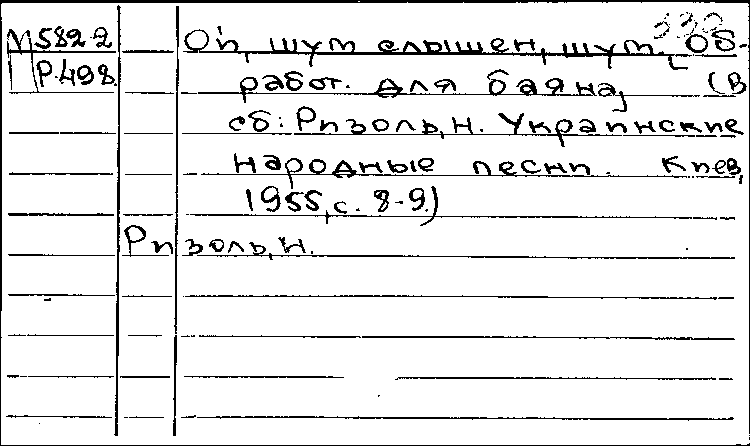 332
М582-2 Ой, шум слышен, шум. [Об-
Р.498. работ. для баяна] (В
сб: Ризоль, Н. Украинские
народные песни. Киев,
1955, с. 8-9.)
Ризоль, Н.